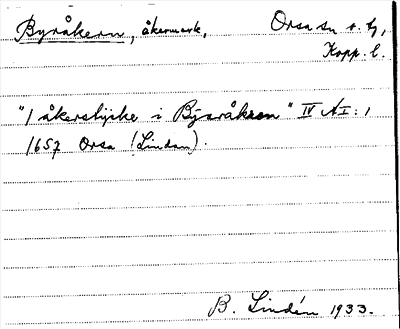 Byråkern, åkermark, Orsa sn o. tg,
Kopp. l.
"1 åkerstycke i Byaråkren" IV AI: 1
1657 Orsa (Lindan).
B. Lindén 1933.